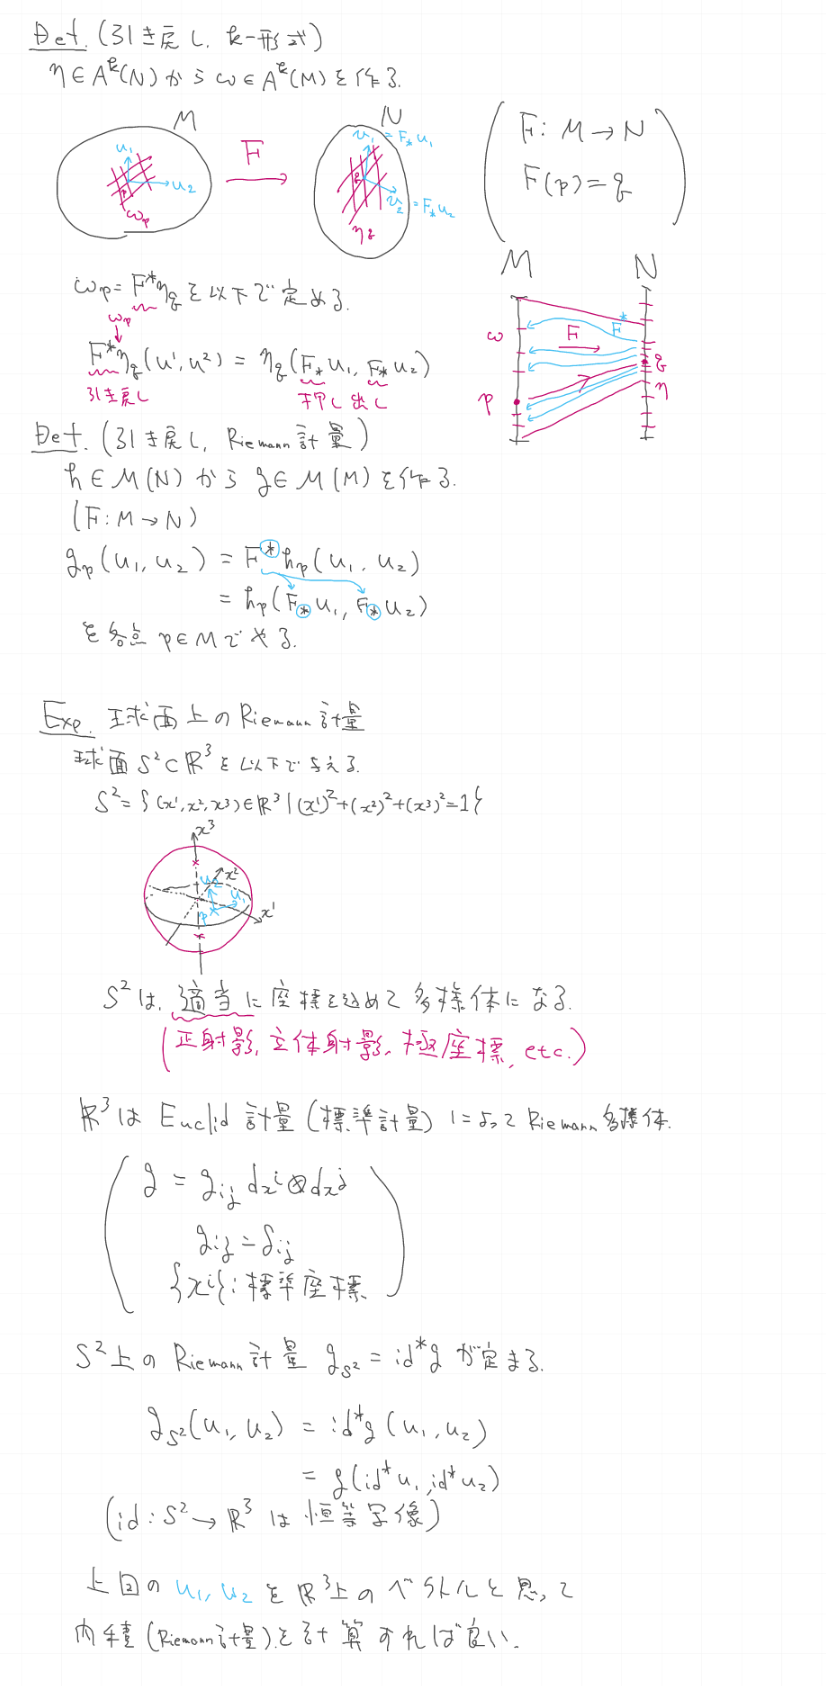 Def. (引き戻し, k-形式)
η∈A^k(N) から ω∈A^k(M) を作る.
M
N
u₁
u₂
p
ω_p
F
v₁ = F_*u₁
v₂ = F_*u₂
q
η_q
F: M → N
F(p) = q
ω_p = F^*η_q を以下で定める.
ω_p
F^*η_q(u¹, u²) = η_q(F_*u₁, F_*u₂)
引き戻し
押し出し
M
N
ω
F
F^*
p
q
η
Def. (引き戻し, Riemann計量)
h∈M(N) から g∈M(M) を作る.
(F: M → N)
g_p(u₁, u₂) = F^*h_p(u₁, u₂)
= h_p(F_*u₁, F_*u₂)
を各点 p∈M でやる.
Exp. 球面上のRiemann計量
球面 S²⊂ℝ³ を以下で与える.
S² = {(x¹, x², x³)∈ℝ³ | (x¹)²+(x²)²+(x³)²=1}
x³
x²
u₂
u₁
p
x¹
S²は, 適当に座標を込めて多様体になる.
(正射影, 立体射影, 極座標, etc.)
ℝ³は Euclid計量 (標準計量) によって Riemann多様体.
g = g_{ij} dx^i⊗dx^j
g_{ij} = δ_{ij}
{x^i}: 標準座標
S²上の Riemann計量 g_{S²} = id^*g が定まる.
g_{S²}(u₁, u₂) = id^*g (u₁, u₂)
= g(id^*u₁, id^*u₂)
(id: S² → ℝ³ は恒等写像)
上図の u₁, u₂ を ℝ³上のベクトルと思って
内積 (Riemann計量) を計算すれば良い.